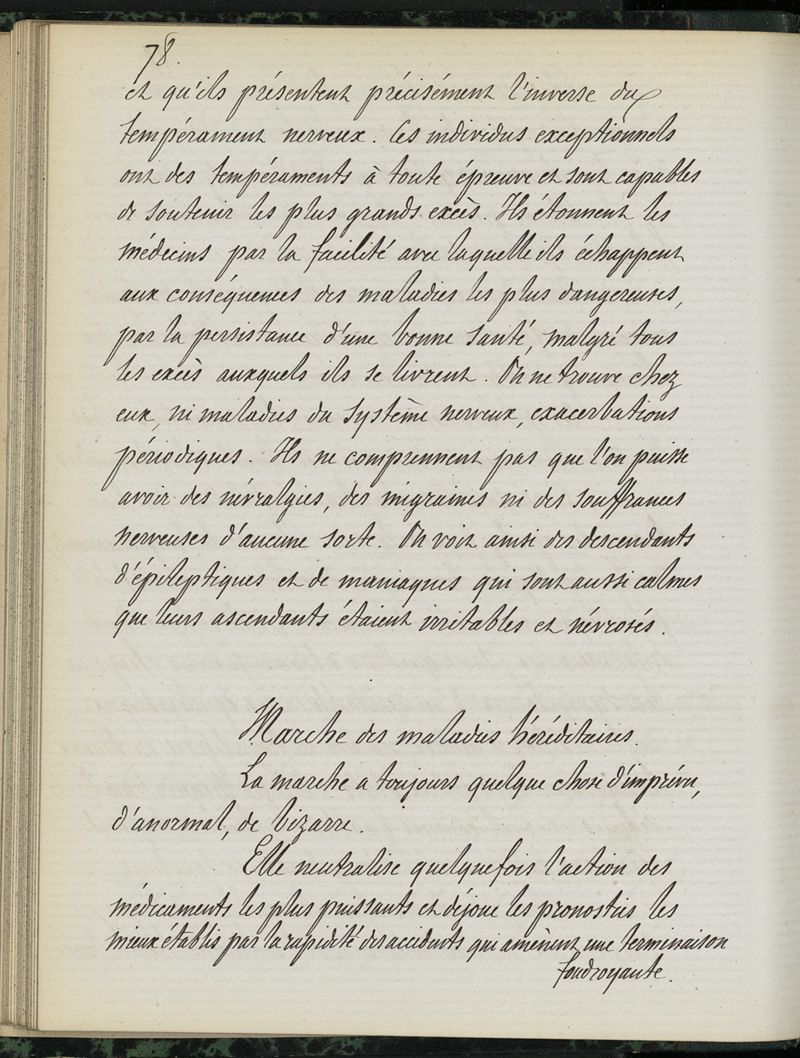 78.
et qu'ils présentent précisément l'inverse du
tempérament nerveux. Ces individus exceptionnels
ont des tempéraments à toute épreuve et sont capables
de soutenir les plus grands excès. Ils étonnent les
médecins par la facilité avec laquelle ils échappent
aux conséquences des maladies les plus dangereuses,
par la persistance d'une bonne santé, malgré tous
les excès auxquels ils se livrent. On ne trouve chez
eux, ni maladies du système nerveux, exacerbations
périodiques. Ils ne comprennent pas que l'on puisse
avoir des névralgies, des migraines ni des souffrances
nerveuses d'aucune sorte. On voit ainsi des descendants
d'épileptiques et de maniaques qui sont aussi calmes
que leurs ascendants étaient irritables et névrosés.
Marche des maladies héréditaires.
La marche a toujours quelque chose d'imprévu,
d'anormal, de bizarre.
Elle neutralise quelquefois l'action des
médicaments les plus puissants et déjoue les pronostics les
mieux établis par la rapidité des accidents qui amènent une terminaison
foudroyante.